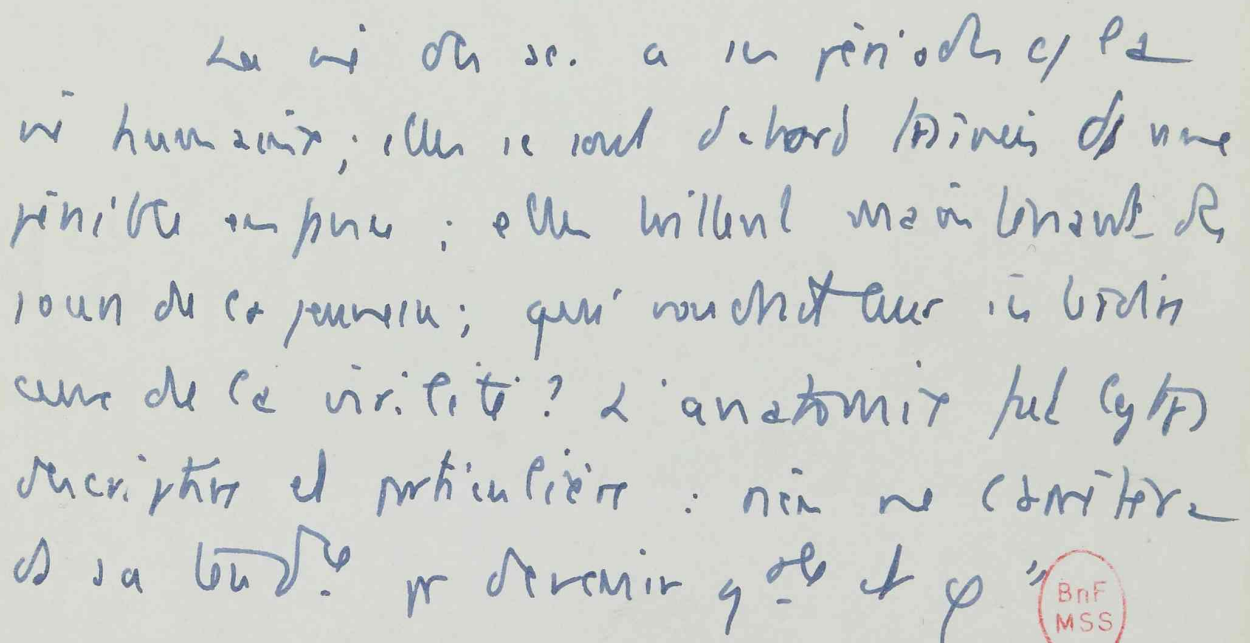 La vie des sc. a ses périodes c/ la
vie humaine ; elles se sont d'abord traînées ds une
pénible enfance ; elles brillent maintenant des
jours de la jeunesse ; qui voudrait leur interdire
ceux de la virilité ? L'anatomie fut lgtps
descriptive et particulière : rien ne l'arrêtera
ds sa tendce pr devenir gale et φ "
BnF
MSS